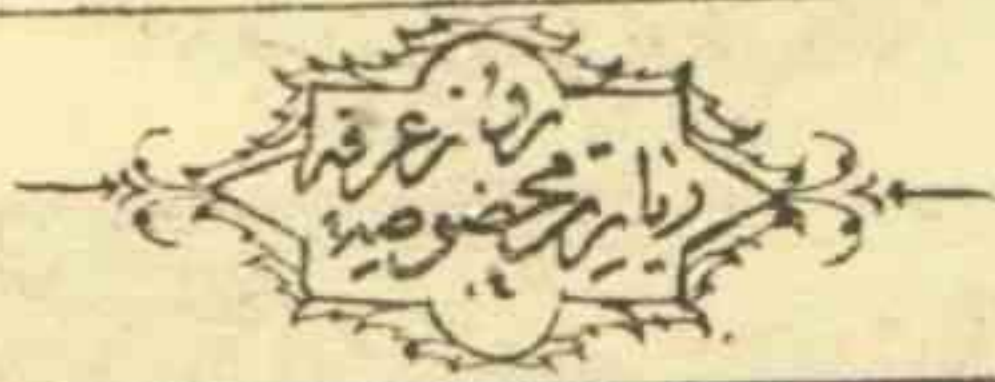 زيارت مخصوصهٔ
روز عرفه